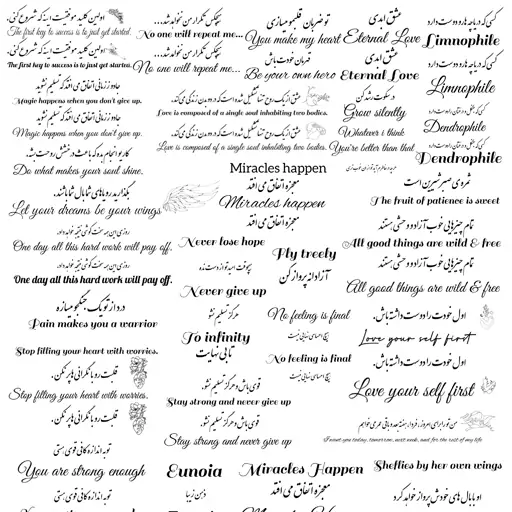 اولین کلید موفقیت اینه که شروع کنی.
The first key to success is to just get started.
اولین کلید موفقیت اینه که شروع کنی.
The first key to success is to just get started.
جادو زمانی اتفاق می افته که تسلیم نشو
Magic happens when you don't give up.
جادو زمانی اتفاق می افته که تسلیم نشو
Magic happens when you don't give up.
کاریو انجام بده که باعث درخشش روحت بشه.
Do what makes your soul shine.
بگذارید رویاهای شما بال شما باشند.
Let your dreams be your wings
روزی این همه سخت کوشی نتیجه خواهد داد.
One day all this hard work will pay off.
روزی این همه سخت کوشی نتیجه خواهد داد.
One day all this hard work will pay off.
درد از تو یک جنگجو میسازه
Pain makes you a warrior
Stop filling your heart with worries.
قلبت رو با نگرانی ها پر نکن.
Stop filling your heart with worries.
قلبت رو با نگرانی ها پر نکن.
تو به اندازه کافی قوی هستی
You are strong enough
تو به اندازه کافی قوی هستی
هیچکس تکرار من نخواهد شد...
No one will repeat me...
هیچکس تکرار من نخواهد شد...
No one will repeat me...
تو ضربان قلبمو میسازی
You make my heart
قهرمان خودت باش
Be your own hero
عشق ابدی
Eternal Love
عشق ابدی
Eternal Love
عشق از یک روح تنها تشکیل شده است که در دو بدن زندگی می کند.
Love is composed of a single soul inhabiting two bodies.
عشق از یک روح تنها تشکیل شده است که در دو بدن زندگی می کند.
Love is composed of a single soul inhabiting two bodies.
در سکوت رشد کن
Grow silently
Whatever i think
You're better than that
Miracles happen
معجزه اتفاق می افتد
Miracles happen
معجزه اتفاق می افتد
Never lose hope
هیچوقت امیدتو از دست نده
Never give up
هرگز تسلیم نشو
To infinity
تا بی نهایت
Fly freely
آزادانه پرواز کن
No feeling is final
هیچ احساسی نهایی نیست
No feeling is final
هیچ احساسی نهایی نیست
قوی باش و هرگز تسلیم نشو
Stay strong and never give up
قوی باش و هرگز تسلیم نشو
Stay strong and never give up
Eunoia
ذهن زیبا
Miracles Happen
معجزه اتفاق می افتد
کسی که دریاچه ها رو دوست داره
Limnophile
کسی که دریاچه ها رو دوست داره
Limnophile
کسی که جنگل و درختان را دوست دارد
Dendrophile
کسی که جنگل و درختان را دوست دارد
Dendrophile
ثمره ی صبر شیرین است
The fruit of patience is sweet
تمام چیزهایی خوب آزاد و وحشی هستند
All good things are wild & free
تمام چیزهایی خوب آزاد و وحشی هستند
All good things are wild & free
اول خودت را دوست داشته باش.
Love your self first
اول خودت را دوست داشته باش.
Love your self first
من تو رو برای امروز، فردا، هفته بعد و باقی عمرم می خواهم
I want you today, tomorrow, next week, and for the rest of my life
She flies by her own wings
او با بال های خودش پرواز خواهد کرد